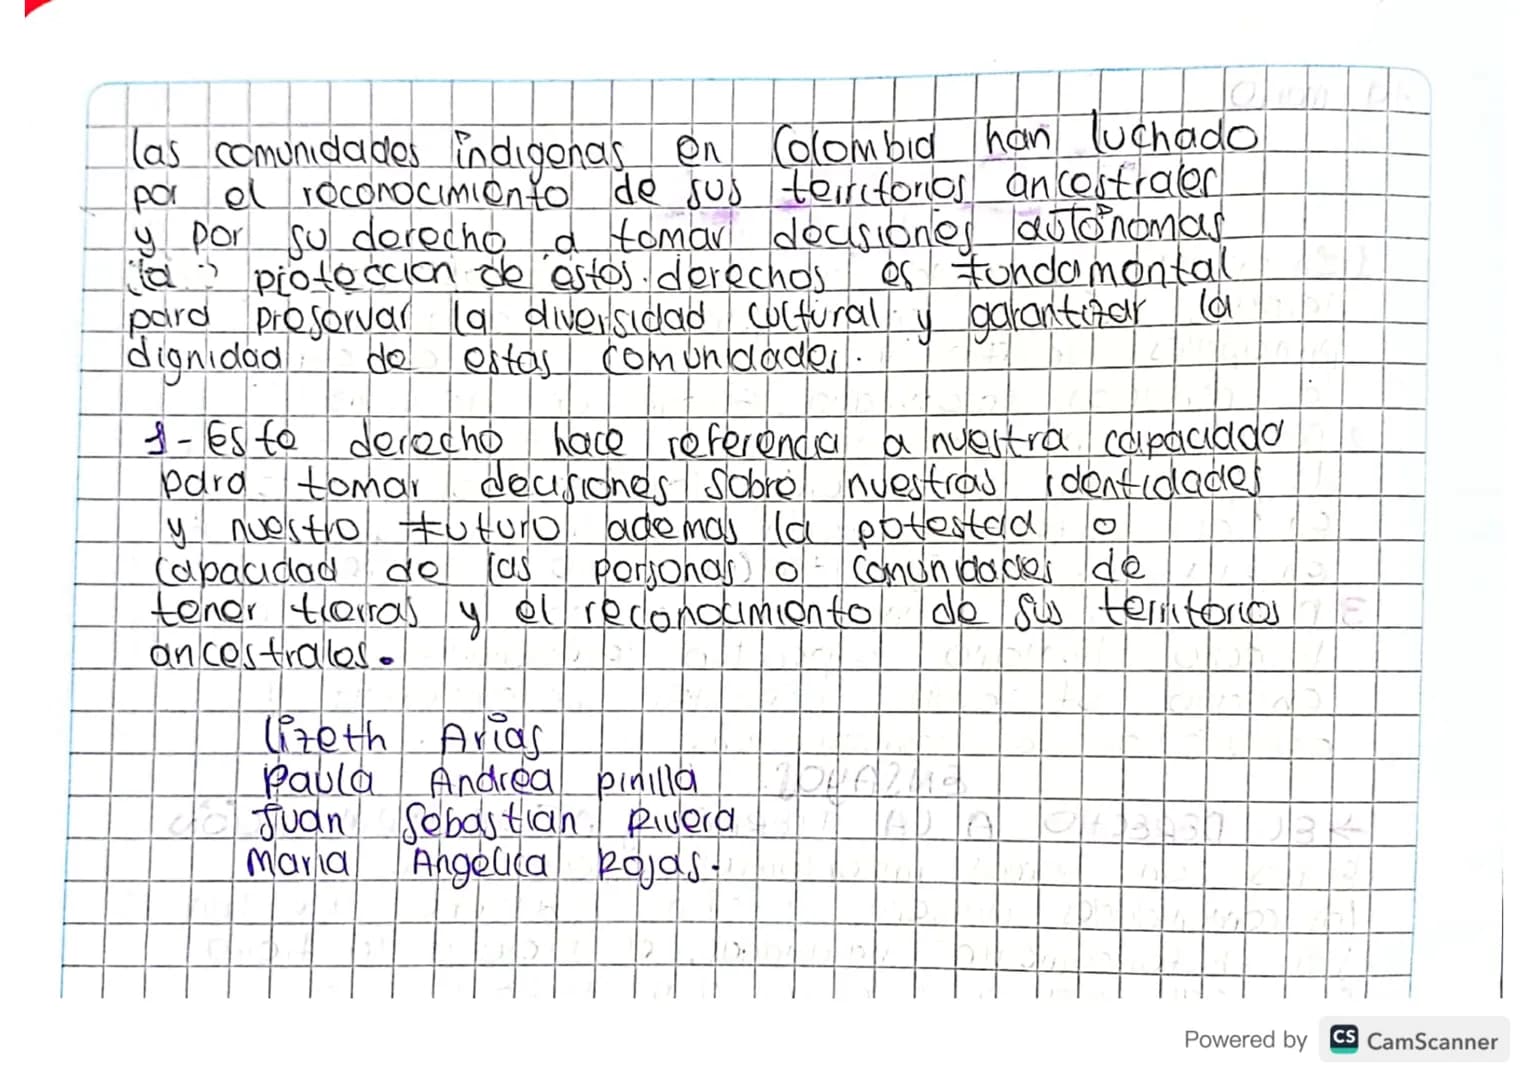 las comunidades indigenas en Colombia han luchado
por el reconocimiento de sus territorios ancestrales
y por su derecho a tomar decisiones autonomas
la protección de estos derechos es fundamental
para preservar la diversidad cultural y garantizar la
dignidad de estas comunidades.
1- Este derecho hace referencia a nuestra capacidad
para tomar decisiones sobre nuestras identidades
y nuestro futuro ademas la potestad o
capacidad de las personas o comunidades de
tener tierras y el reconocimiento de sus territorios
ancestrales.
lizeth Arias
Paula Andrea pinilla
Juan Sebastian Rivera
Maria Angelica Rojas.
Powered by CS CamScanner